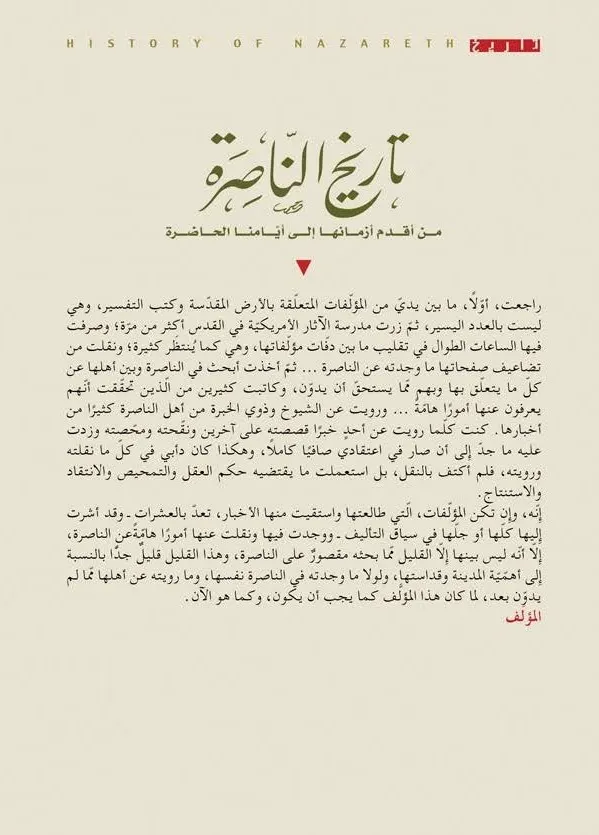 HISTORY OF NAZARETH تاريخ
تاريخ النّاصِرَة
من أقدم أزمانها إلى أيّامنا الحاضرة
راجعت، أوّلًا، ما بين يديّ من المؤلّفات المتعلّقة بالأرض المقدّسة وكتب التفسير، وهي
ليست بالعدد اليسير، ثمّ زرت مدرسة الآثار الأمريكيّة في القدس أكثر من مرّة؛ وصرفت
فيها الساعات الطوال في تقليب ما بين دفّات مؤلّفاتها، وهي كما يُنتظَر كثيرة؛ ونقلت من
تضاعيف صفحاتها ما وجدته عن الناصرة ... ثمّ أخذت أبحث في الناصرة وبين أهلها عن
كلّ ما يتعلّق بها وبهم ممّا يستحقّ أن يدوّن، وكاتبت كثيرين من الّذين تحقّقت أنّهم
يعرفون عنها أمورًا هامّةً ... ورويت عن الشيوخ وذوي الخبرة من أهل الناصرة كثيرًا من
أخبارها. كنت كلّما رويت عن أحدٍ خبرًا قصصته على آخرين ونقّحته ومحّصته وزدت
عليه ما جدّ إلى أن صار في اعتقادي صافيًا كاملًا، وهكذا كان دأبي في كلّ ما نقلته
ورويته، فلم أكتف بالنقل، بل استعملت ما يقتضيه حكم العقل والتمحيص والانتقاد
والاستنتاج.
إنّه، وإن تكن المؤلّفات، الّتي طالعتها واستقيت منها الأخبار، تعدّ بالعشرات ـ وقد أشرت
إليها كلّها أو جلّها في سياق التأليف ـ ووجدت فيها ونقلت عنها أمورًا هامّةً عن الناصرة،
إلّا أنّه ليس بينها إلّا القليل ممّا بحثه مقصورٌ على الناصرة، وهذا القليل قليلٌ جدًّا بالنسبة
إلى أهمّيّة المدينة وقداستها، ولولا ما وجدته في الناصرة نفسها، وما رويته عن أهلها ممّا لم
يدوّن بعد، لما كان هذا المؤلَّف كما يجب أن يكون، وكما هو الآن.
المؤلف